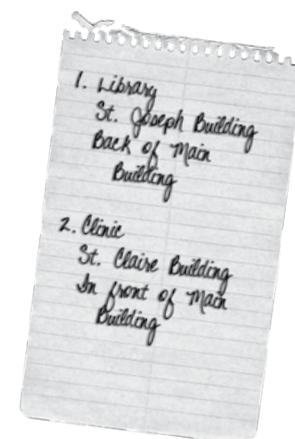 1. Library
St. Joseph Building
Back of Main
Building
2. Clinic
St. Claire Building
In front of Main
Building